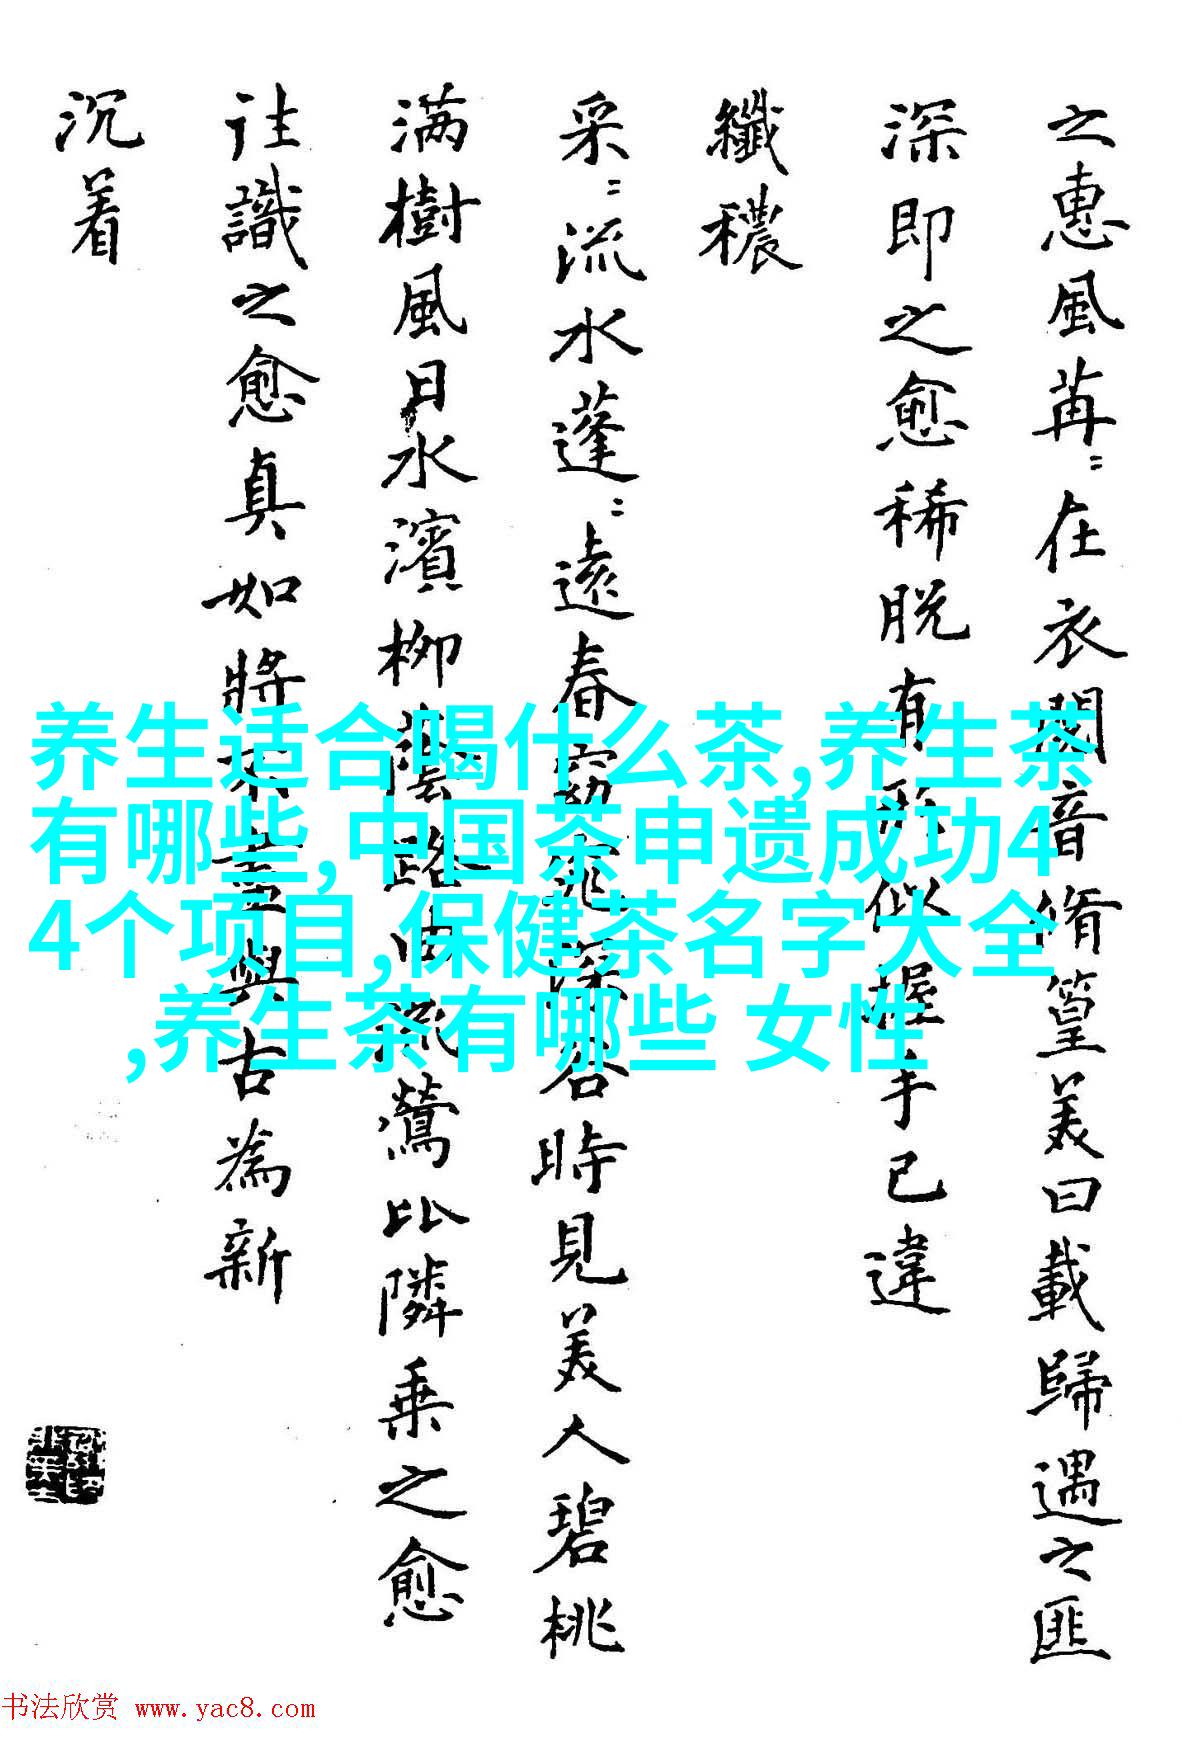 之惠風苒゠在衣閱音脩篁美曰載歸遇之匪
深即之愈稀脱有形似握手已違
纖穠
采゠流水蓬゠遠春窈窕深谷時見美人碧桃
满樹風日水濱柳蔭路曲流鶯比隣乗之愈
往識之愈真如將不盡與古為新
沉着
养生适合喝什么茶,养生茶
有哪些,中国茶申遗成功4
4个项目,保健茶名字大全
,养生茶有哪些 女性
书法欣赏 www.yac8.com